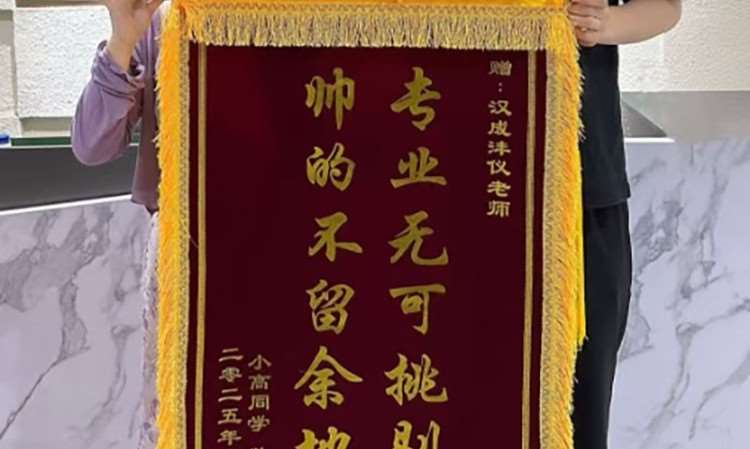 赠：汉成沣仪老师
专业无可挑剔
帅的不留余地
小高同学
二零二五年